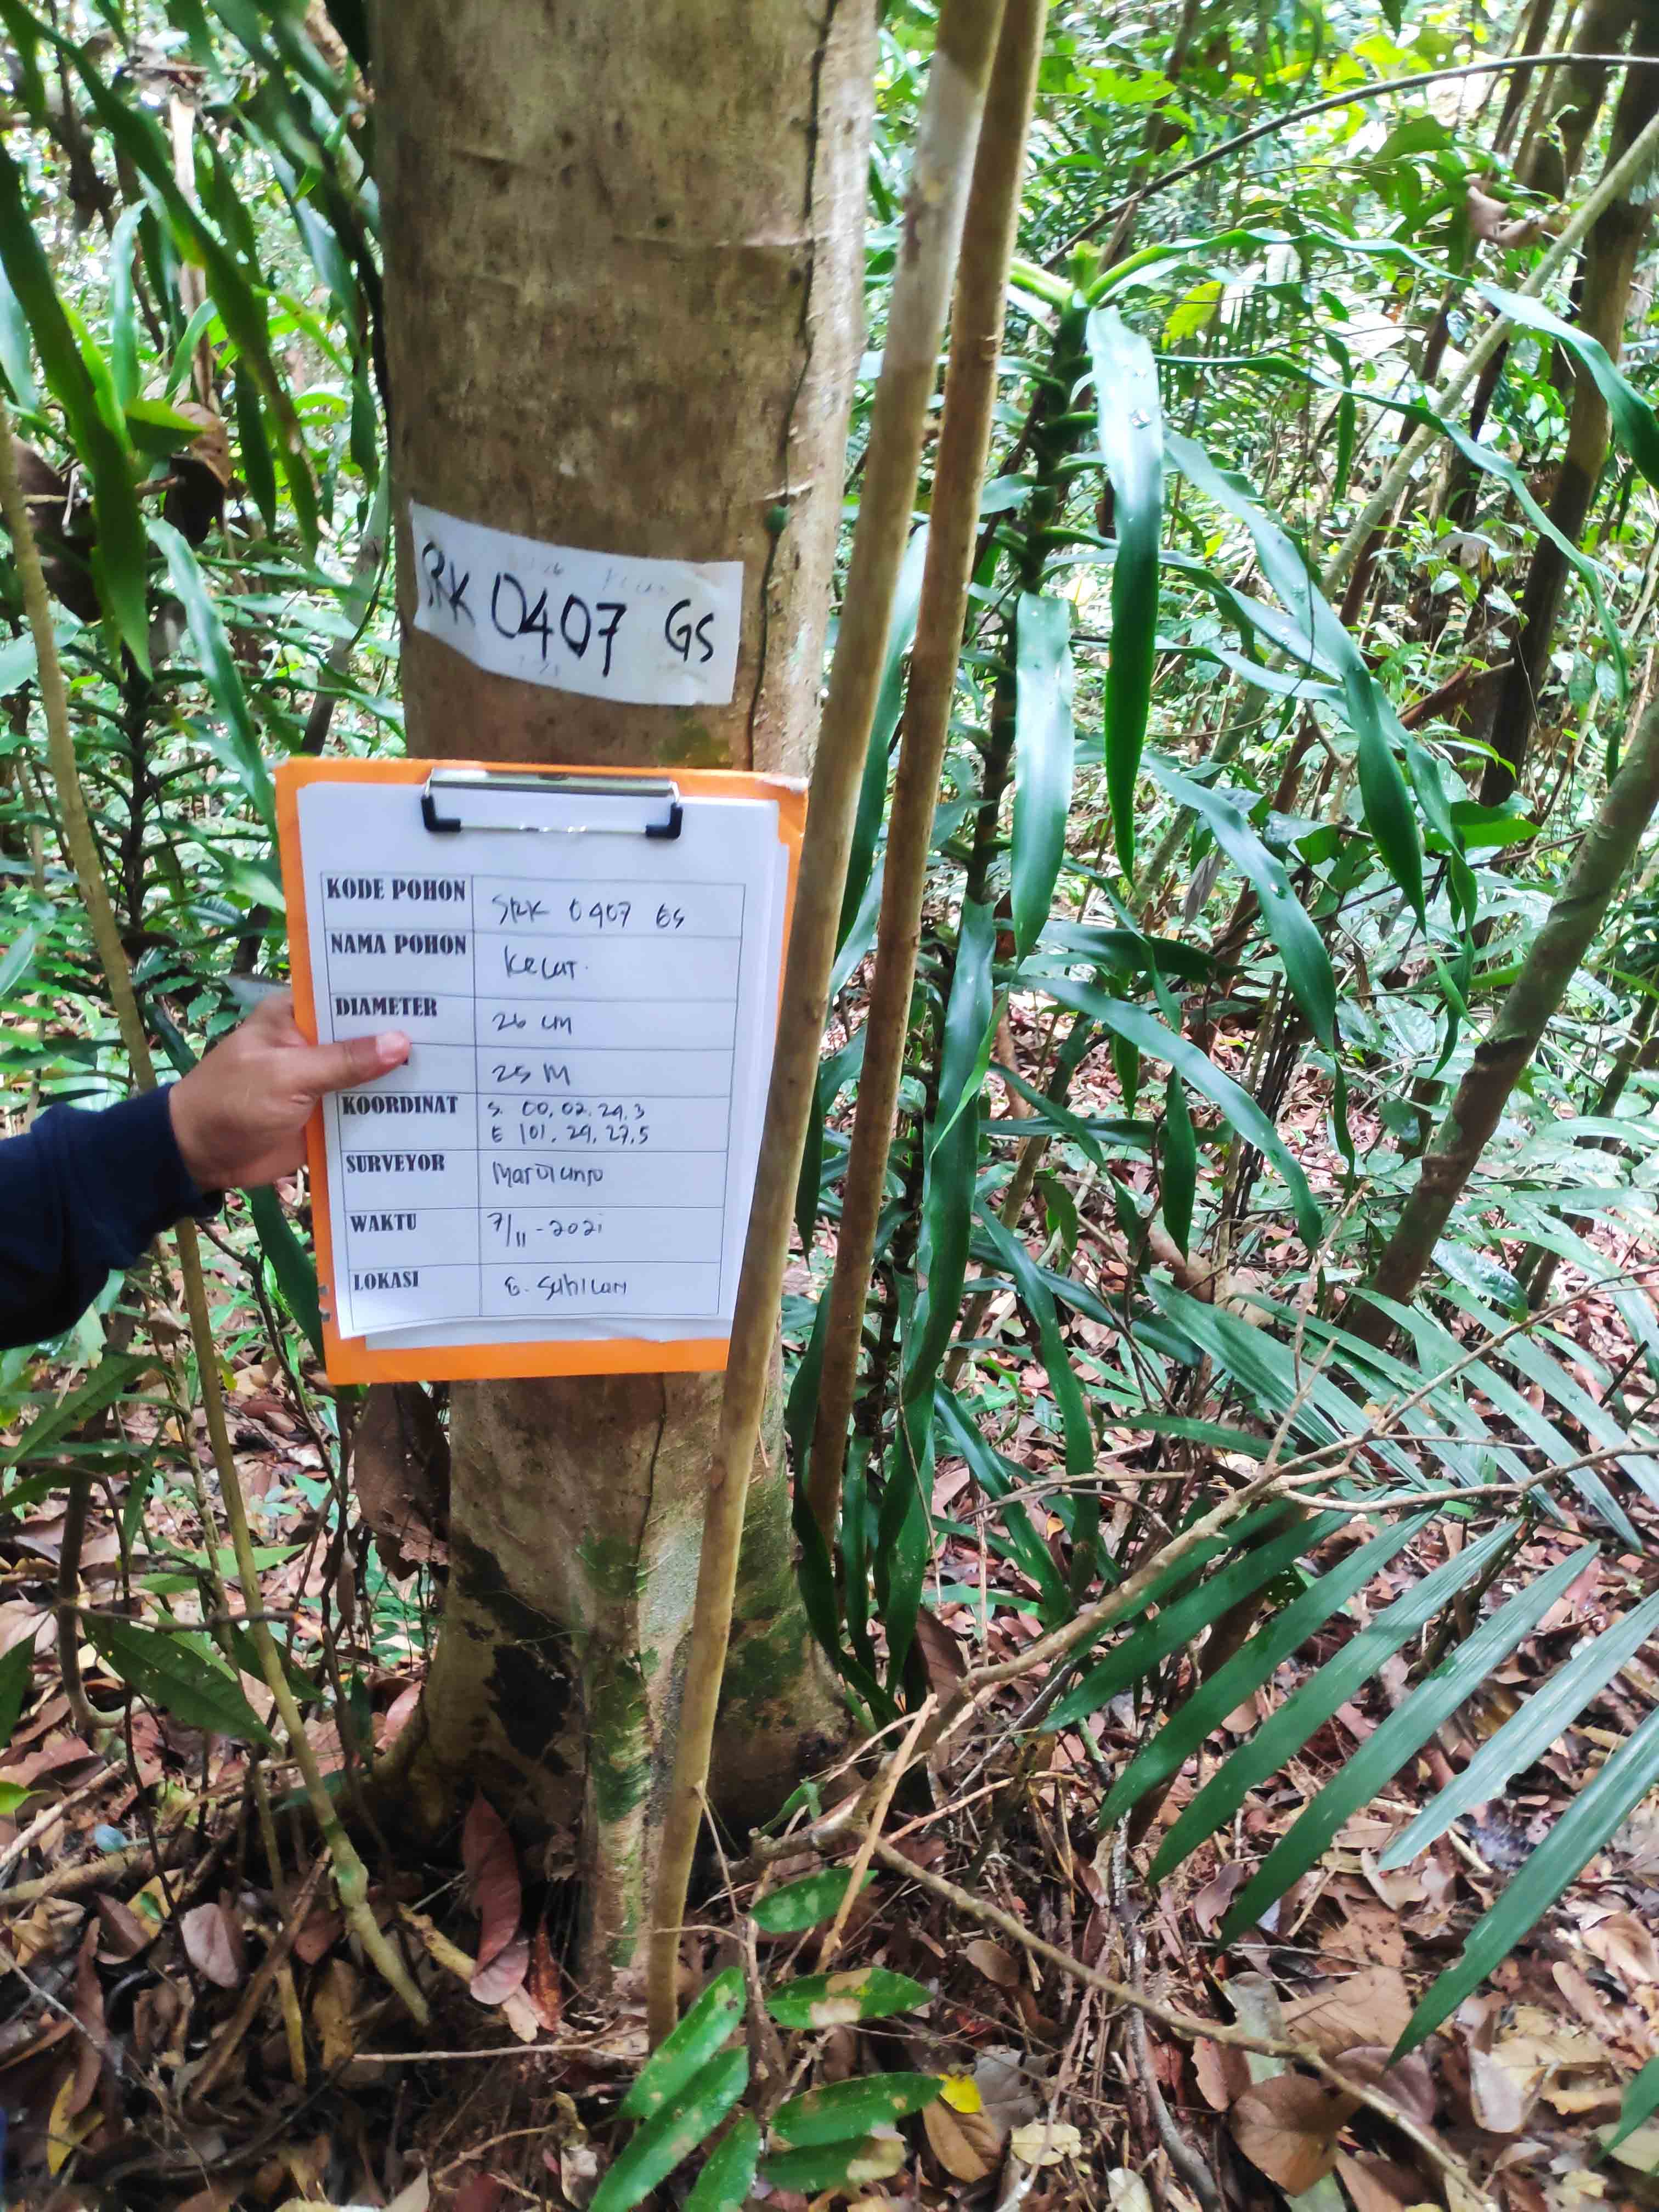 SRK 0407 GS
KODE POHON SRK 0407 GS
NAMA POHON Kelat.
DIAMETER 26 cm
25 M
KOORDINAT S. 00.02.29.3
E 101.29.27.5
SURVEYOR
WAKTU 7/11-2021
LOKASI G. Sahilan